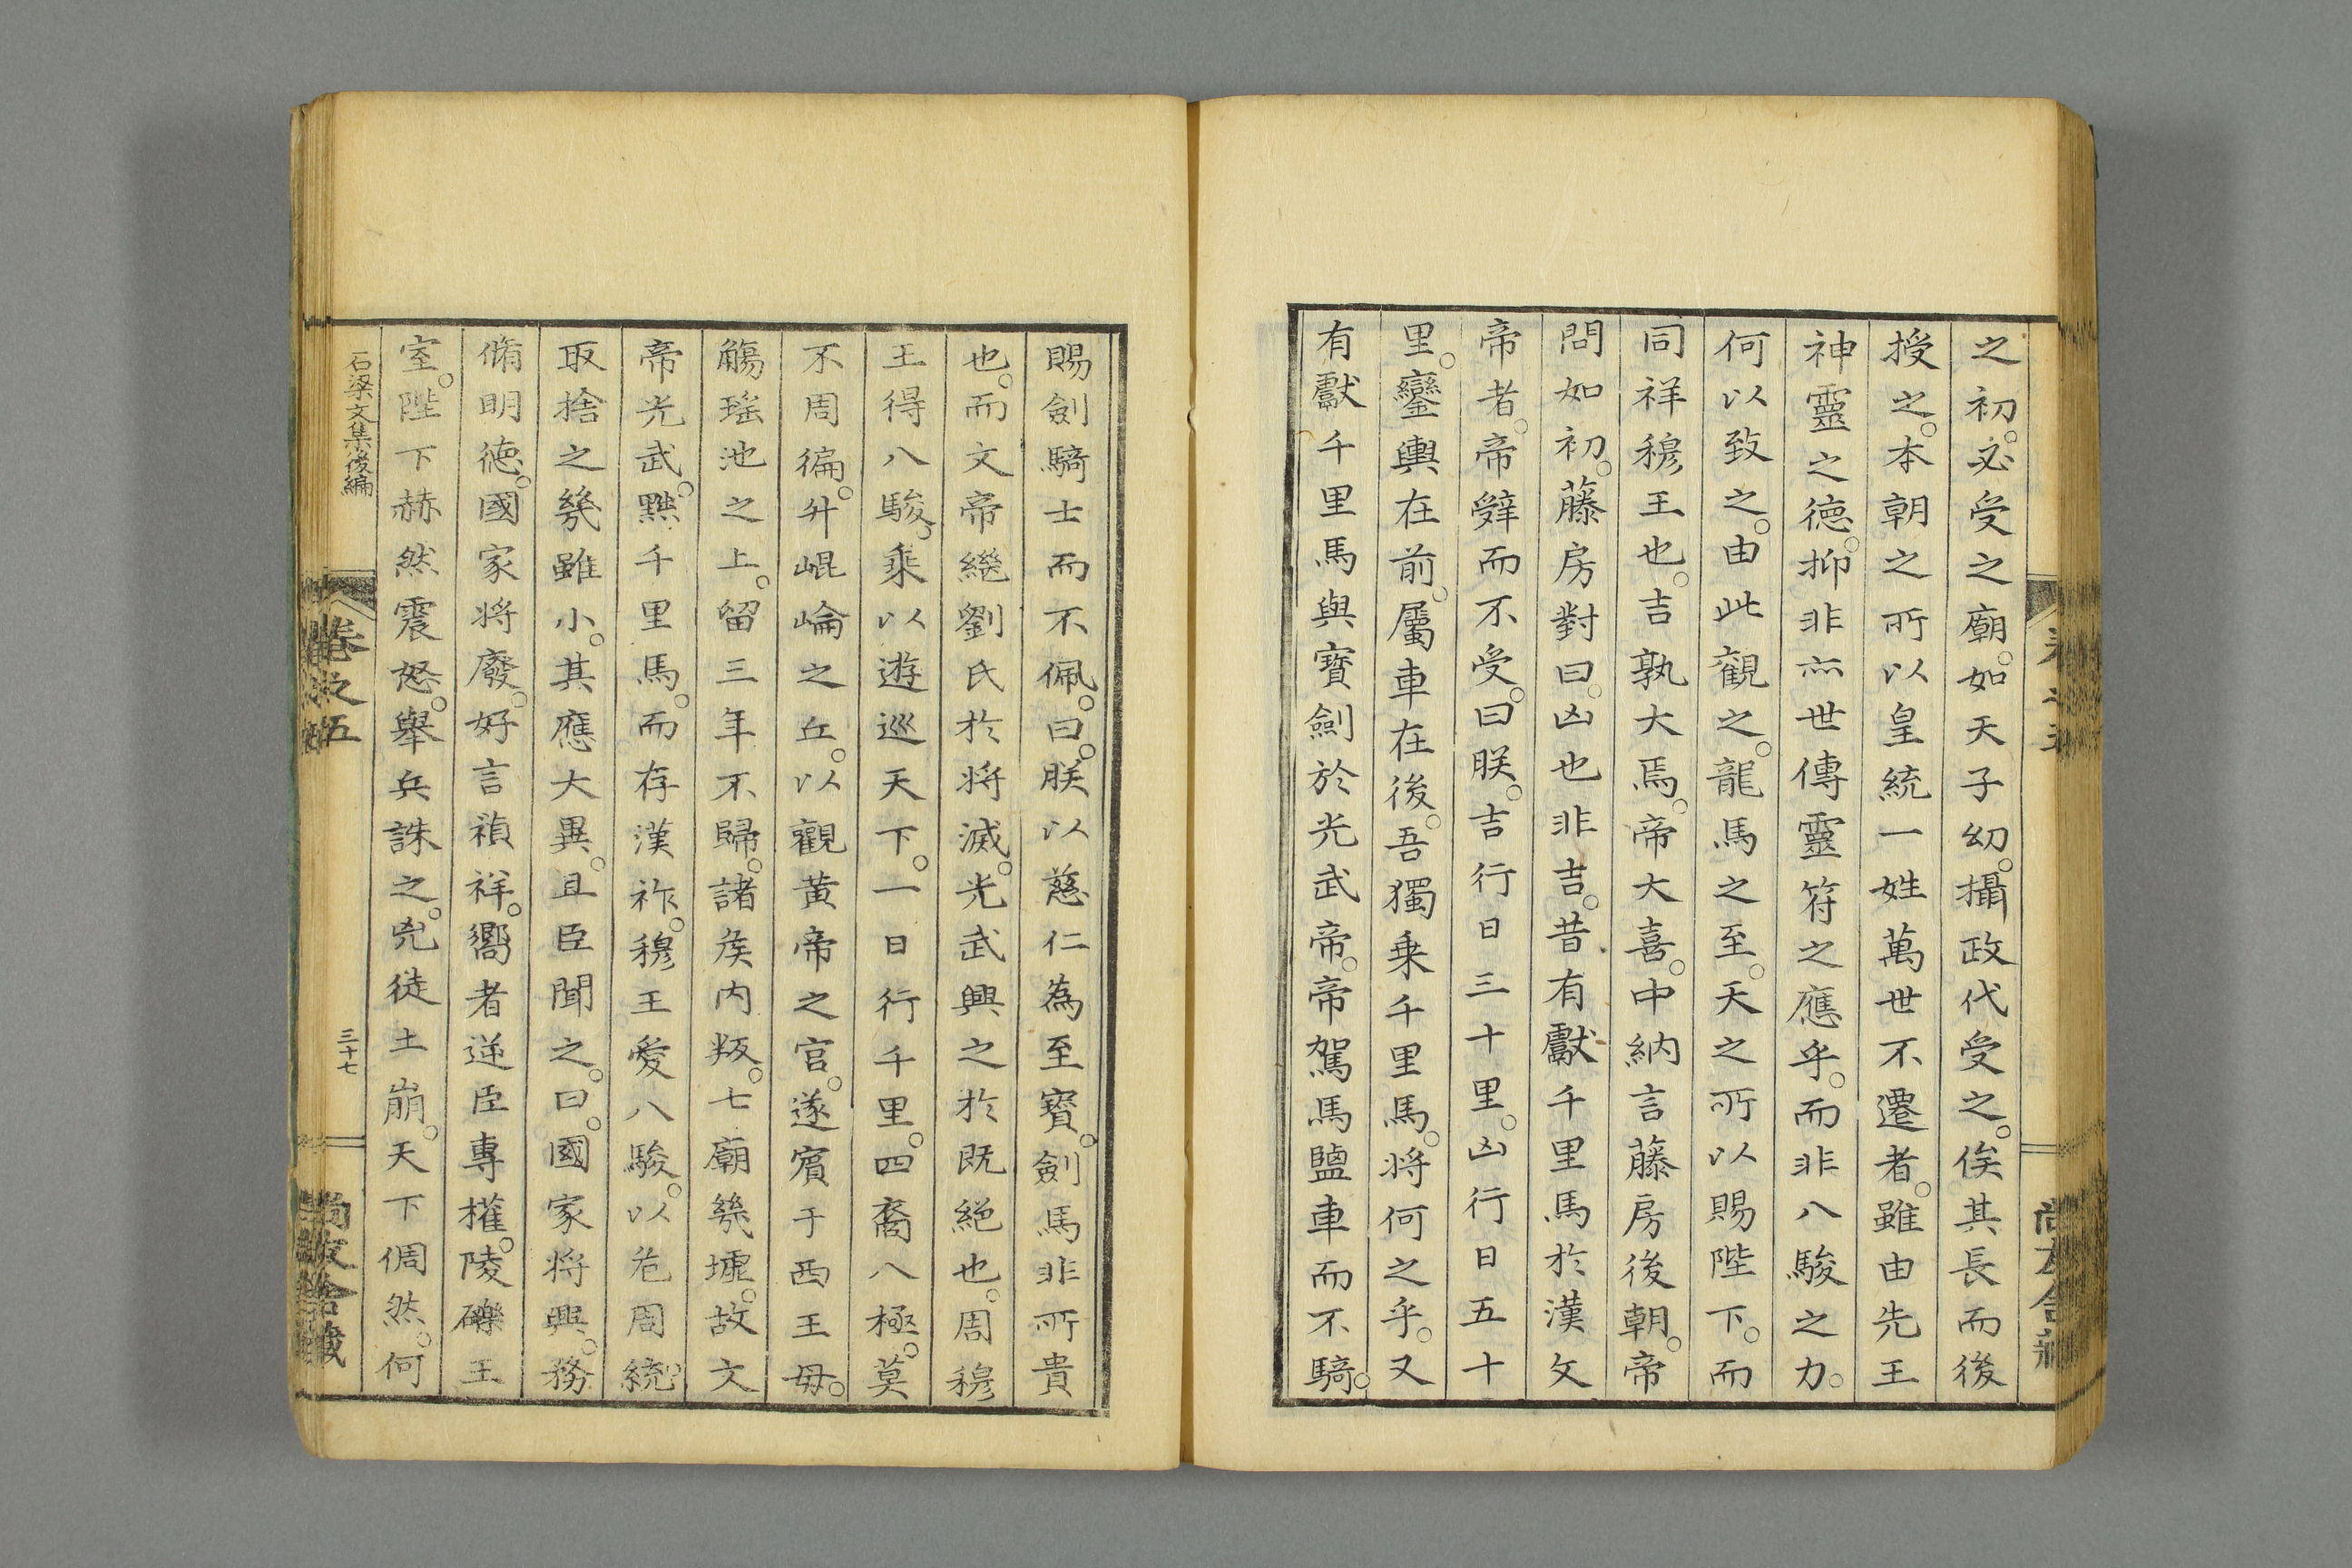 之初。必受之廟。如天子幼。攝政代受之。俟其長而後
授之。本朝之所以皇統一姓萬世不遷者。雖由先王
神靈之德。抑非亦世傳靈符之應乎。而非八駿之力。
何以致之。由此觀之。龍馬之至。天之所以賜陛下。而
同祥穆王也。吉孰大焉。帝大喜。中納言藤房後朝。帝
問如初。藤房對曰。凶也非吉。昔有獻千里馬於漢文
帝者。帝辭而不受。曰朕。吉行日三十里。凶行日五十
里。鑾輿在前。屬車在後。吾獨乘千里馬。將何之乎。又
有獻千里馬與寶劍於光武帝。帝駕馬鹽車而不騎。
賜劍騎士而不佩。曰。朕以慈仁為至寶。劍馬非所貴
也。而文帝繼劉氏於將滅。光武興之於既絕也。周穆
王得八駿。乘以遊巡天下。一日行千里。四裔八極。莫
不周徧。升崐崘之丘。以觀黃帝之宮。遂賓于西王母。
觴瑤池之上。留三年不歸。諸侯內叛。七廟幾墟。故文
帝光武。黜千里馬。而存漢祚。穆王愛八駿。以危周統。
取捨之幾雖小。其應大異。且臣聞之。曰。國家將興。務
脩明德。國家將廢。好言禎祥。嚮者逆臣專權。陵轢王
室。陛下赫然震怒。舉兵誅之。兇徒土崩。天下倜然。何
石梁文集後編
卷之五
三十七